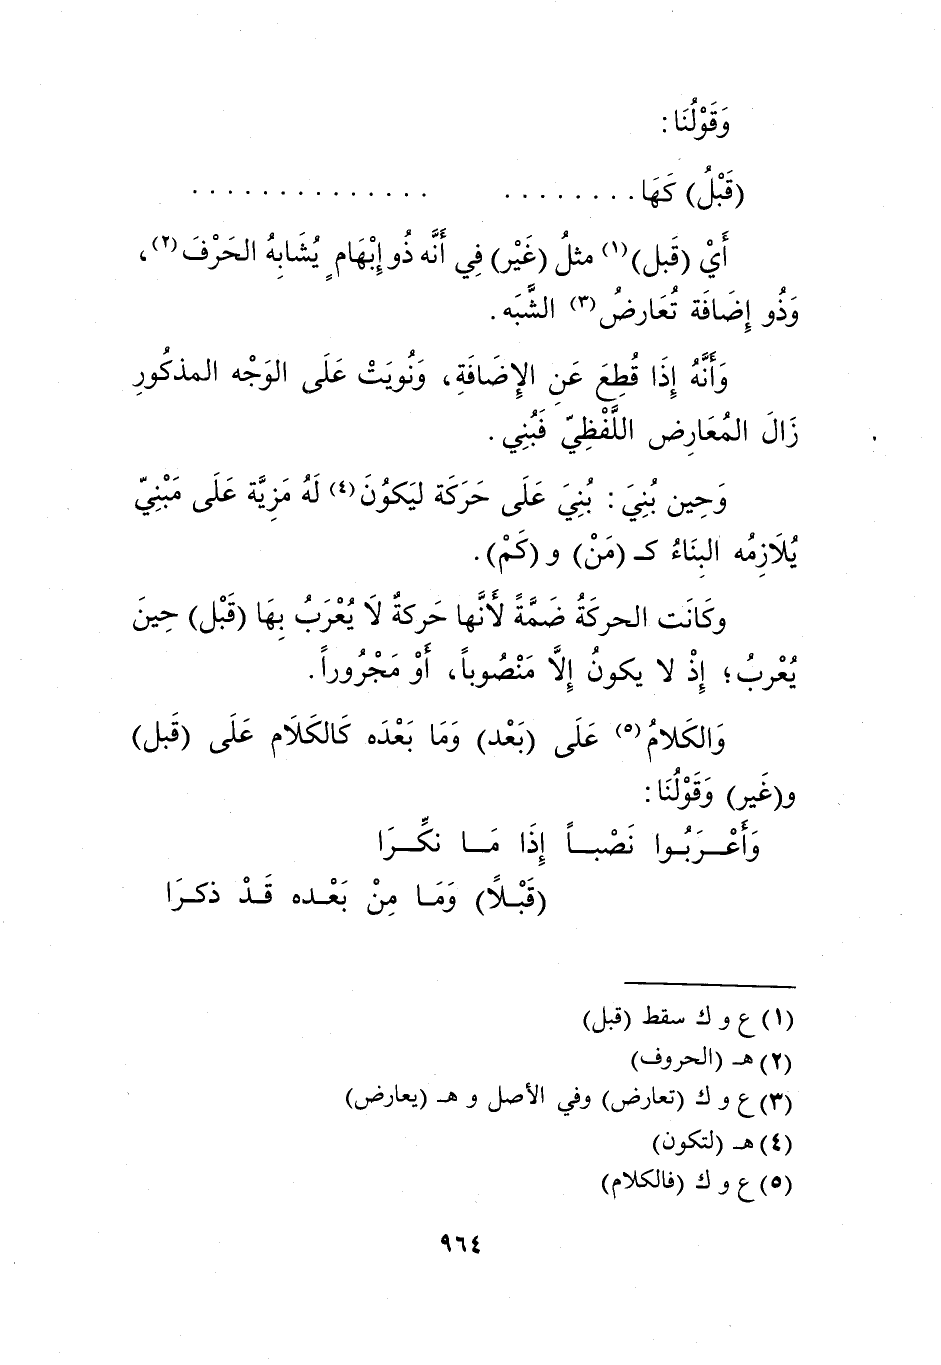 وَقَوْلُنَا:
(قَبْلُ) كَهَا . . . . . . . . . . . . . . . . . . . . . .
أَيْ (قَبل)(١) مثلُ (غَيْر) فِي أَنَّه ذُو إِبْهَام يُشَابِهُ الحَرْفَ(٢)،
وَذُو إِضَافَة تُعَارضُ(٣) الشَّبَه.
وَأَنَّهُ إِذَا قُطِعَ عَنِ الإِضَافَةِ، وَنُويَتْ عَلَى الوَجْه المذكُورِ
زَالَ المُعَارِض اللَّفْظِيّ فَبُنِي.
وَحِين بُنِيَ: بُنِيَ عَلَى حَرَكَة ليَكوُنَ(٤) لَهُ مَزِيَّة عَلَى مَبْنِيّ
يُلَازِمُه البِنَاءُ كـ (مَنْ) و (كَمْ).
وكَانَت الحركَةُ ضَمَّةً لأَنَّها حَركةٌ لَا يُعْرَبُ بِهَا (قَبْل) حِينَ
يُعْربُ؛ إِذْ لا يكونُ إِلَّا مَنْصُوباً، أَوْ مَجْرُوراً.
وَالكَلامُ(٥) عَلَى (بَعْد) وَمَا بَعْدَه كَالكَلَام عَلَى (قَبل)
و(غَير) وَقَوْلُنَا:
وَأَعْـرَبُـوا نَصْبـاً إِذَا مَـا نكِّـرَا
(قَبْـلاً) وَمَـا مِنْ بَعْـده قَـدْ ذكـرَا
(١) ع و ك سقط (قبل)
(٢) هـ (الحروف)
(٣) ع و ك (تعارض) وفي الأصل و هـ (يعارض)
(٤) هـ (لتكون)
(٥) ع و ك (فالكلام)
٩٦٤